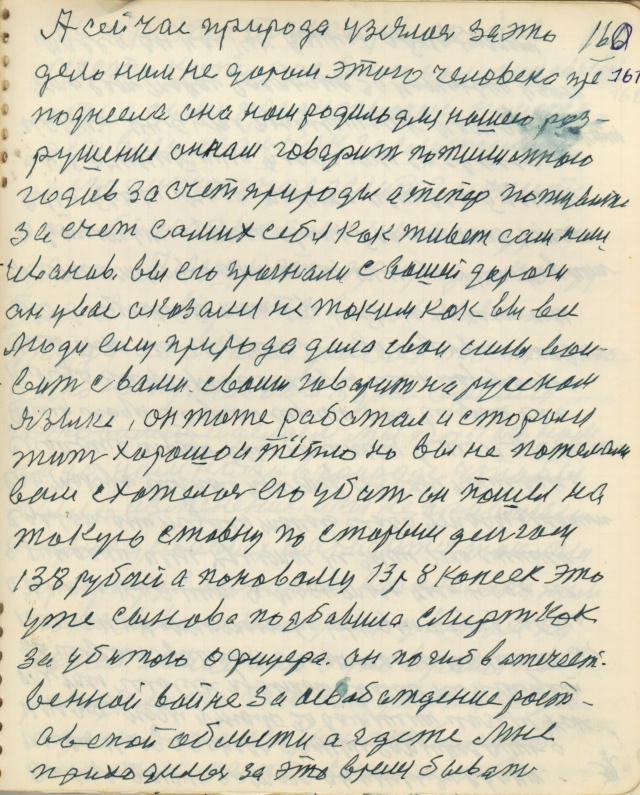 А сейчас природа узялся за это 160
дело нам не даром этого человека пре 161
поднесла она нам родила для нашего раз-
рушения он нам говорит пожили много
годов за счет природы а тепер поживите
за счет самих себя как живет сам наш
Иванов. вы его прогнали с вашей дороги
он увас оказался не таким как вы все
люди ему природа дала свои силы
с вами. своим говорит на русском
языке, он тоже работал и старался
жит хорошо и тепло но вы не пожелали
вам схотелося его убит он пошел на
такую ставку по старым денгам
138 рублей а поновому 13 р 8 копеек это
уже сынова подбавила смерт как
за убитого офицера. он погиб в отечест-
венной войне за освобождение рост-
овской области а где же мне
приходилося за это время бывать